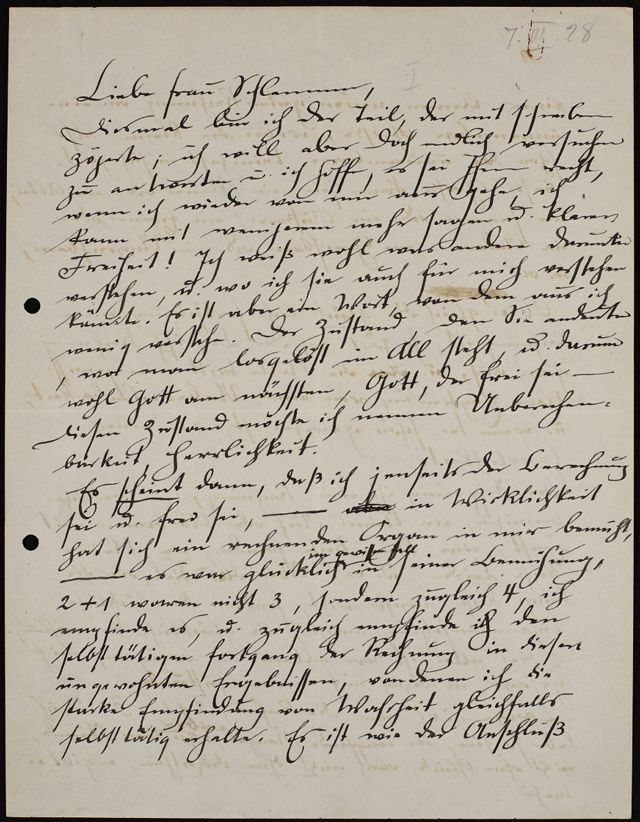 7. III. 28
I
Liebe Frau Schlemmer,
Diesmal bin ich der Teil, der mit schreiben
zögerte; ich will aber doch endlich versuchen
zu antworten u. ich hoffe, es sei Ihnen recht,
wenn ich wieder von mir aus gehe, ich
kann mit wenigerem mehr sagen u. klären
Freiheit! Ich weiß wohl was andere darunter
verstehen, u. wo ich sie auch für mich verstehen
könnte. Es ist aber ein Wort, von dem aus ich
wenig verstehe. Der Zustand, den Sie andeuten
, wo man losgelöst im All steht, u. darum
wohl Gott am nächsten, Gott, der frei sei —
diesen Zustand möchte ich nennen Unberechen-
barkeit, Herrlichkeit.
Es scheint dann, daß ich jenseits der Berechnung
sei u. frei sei, — in Wirklichkeit
hat sich ein rechnendes Organ in mir bemüht,
— es war glücklich in seiner Bemühung,
im gewissen Fall
2 + 1 waren nicht 3, sondern zugleich 4, ich
empfinde es, u. zugleich empfinde ich den
selbsttätigen Fortgang der Rechnung in diesen
ungewohnten Ergebnissen, von denen ich die
starke Empfindung von Wahrheit gleichfalls
selbsttätig erhalte. Es ist wie der Anschluß